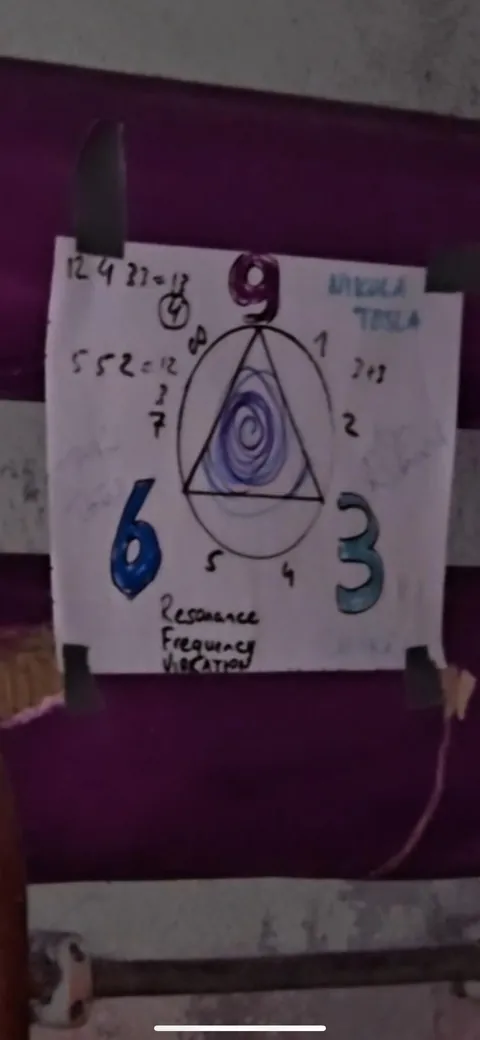 9
NIKOLA
TESLA
12 4 33 = 13
4
8
1
5 5 2 = 12
3
7
2
6
3
5
4
Resonance
Frequency
VIBRATION